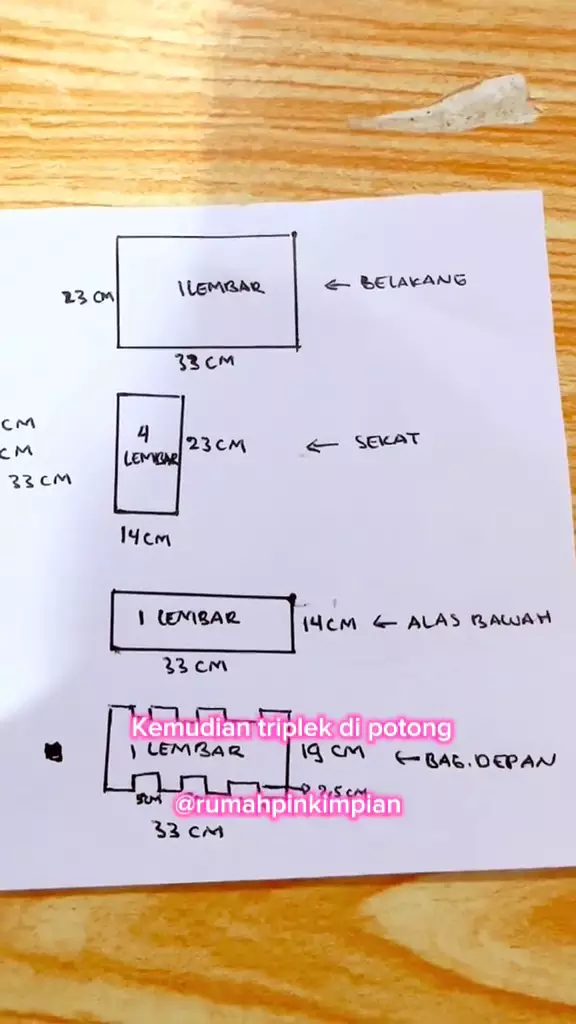 23 CM
1 LEMBAR
← BELAKANG
33 CM
CM
CM
33 CM
4
LEMBAR
23 CM
← SEKAT
14 CM
1 LEMBAR
14 CM
← ALAS BAWAH
33 CM
Kemudian triplek di potong
1 LEMBAR
19 CM
← BAG. DEPAN
5CM
2.5 CM
@rumahpinkimpian
33 CM